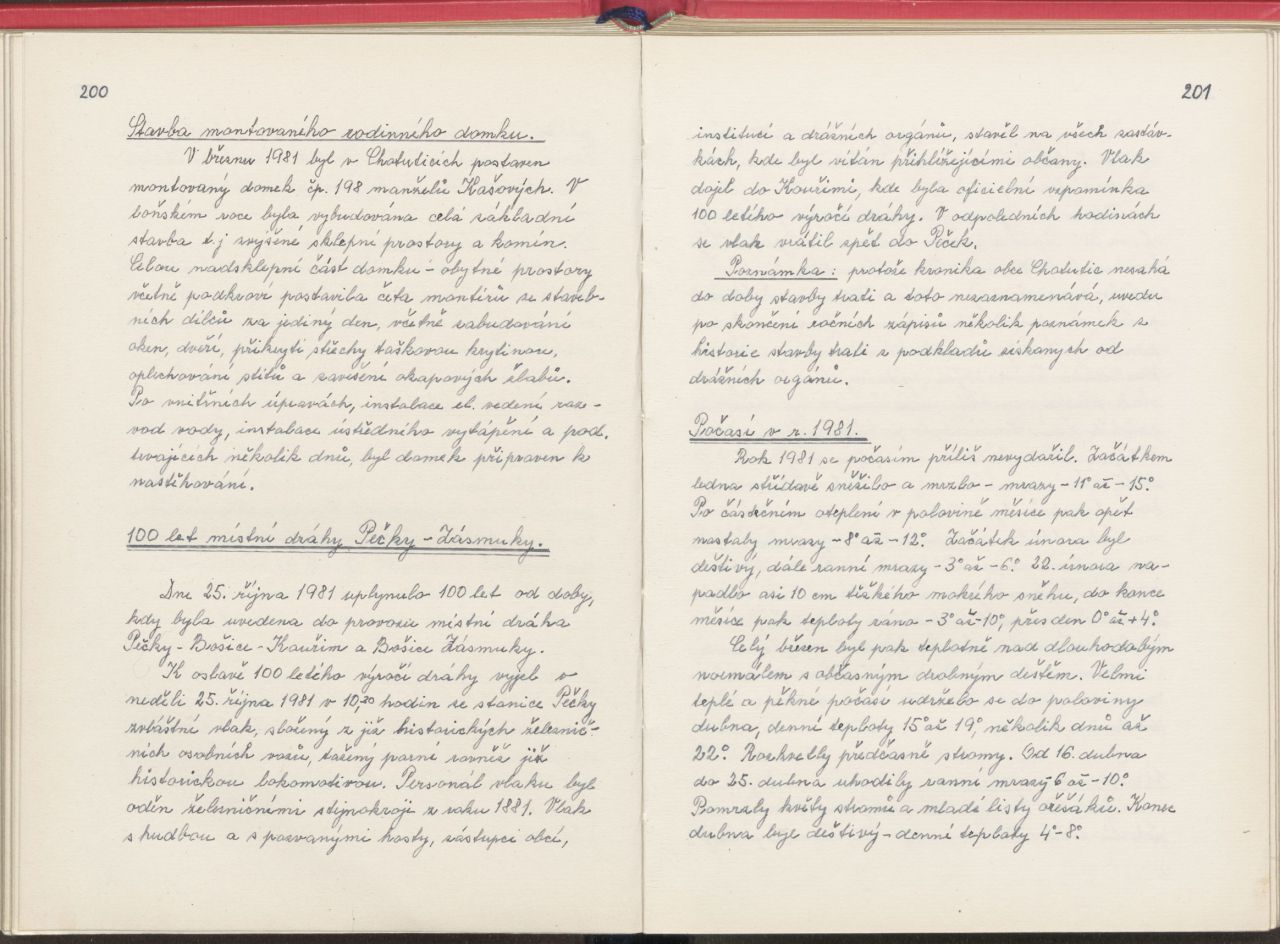 200
Stavba montovaného rodinného domku.
V březnu 1981 byl v Chotuticích postaven
montovaný domek čp. 198 manželů Kašových. V
loňském roce byla vybudována celá základní
stavba t.j zvýšené sklepní prostory a komín.
Celou nadsklepní část domku - obytné prostory
včetně podkroví postavila četa montérů ze staveb-
ních dílců za jediný den, včetně zabudování
oken, dveří, přikrytí střechy taškovou krytinou,
oplechování štítů a zavěšení okapových žlabů.
Po vnitřních úpravách, instalace el. vedení roz-
vod vody, instalace ústředního vytápění a pod.
trvajících několik dnů, byl domek připraven k
nastěhování.
100 let místní dráhy Pečky - Zásmuky.
Dne 25. října 1981 uplynulo 100 let od doby,
kdy byla uvedena do provozu místní dráha
Pečky - Bošice - Kouřim a Bošice Zásmuky.
K oslavě 100 letého výročí dráhy vyjel v
neděli 25. října 1981 v 10,20 hodin ze stanice Pečky
zvláštní vlak, složený z již historických železnič-
ních osobních vozů, tažený parní rovněž již
historickou lokomotivou. Personál vlaku byl
oděn železničními stejnokroji z roku 1881. Vlak
s hudbou a s pozvanými hosty, zástupci obcí,
201
institucí a drážních orgánů, stavěl na všech zastáv-
kách, kde byl vítán přihlížejícími občany. Vlak
dojel do Kouřimi, kde byla oficielní vzpomínka
100 letého výročí dráhy. V odpoledních hodinách
se vlak vrátil zpět do Peček.
Poznámka: protože kronika obce Chotutic nesahá
do doby stavby trati a toto nezaznamenává, uvedu
po skončení ročních zápisů několik poznámek z
historie stavby trati z podkladů získaných od
drážních orgánů.
Počasí v r. 1981.
Rok 1981 se počasím příliš nevydařil. Začátkem
ledna střídavě sněžilo a mrzlo - mrazy - 11° až - 15°.
Po částečném oteplení v polovině měsíce pak opět
nastaly mrazy - 8° až - 12°. Začátek února byl
deštivý, dále ranní mrazy - 3° až - 6°. 22. února na-
padlo asi 10 cm těžkého mokrého sněhu, do konce
měsíce pak teploty ráno - 3° až -10°, přes den 0° až + 4°.
Celý březen byl pak teplotně nad dlouhodobým
normálem s občasným drobným deštěm. Velmi
teplé a pěkné počasí udrželo se do poloviny
dubna, denní teploty 15° až 19°, několik dnů až
22°. Rozkvetly předčasně stromy. Od 16. dubna
do 25. dubna uhodily ranní mrazy - 6 až - 10°.
Pomrzly květy stromů a mladé listy ořešáků. Konec
dubna byl deštivý - denní teploty 4° - 8°.